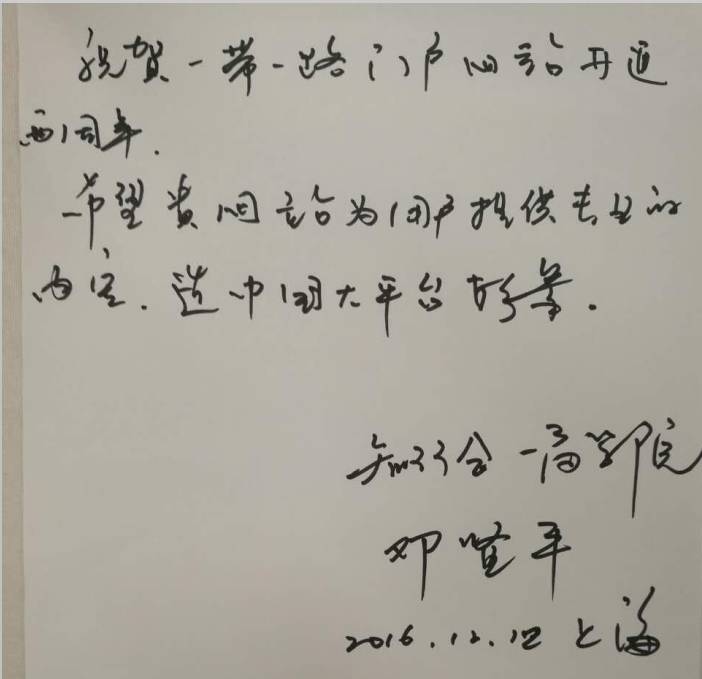 祝贺一带一路门户网站开通
两周年.
希望贵网站为用户提供专业的
内容. 造中国大平台形象.
商学院
邓
2016.12.12 上海